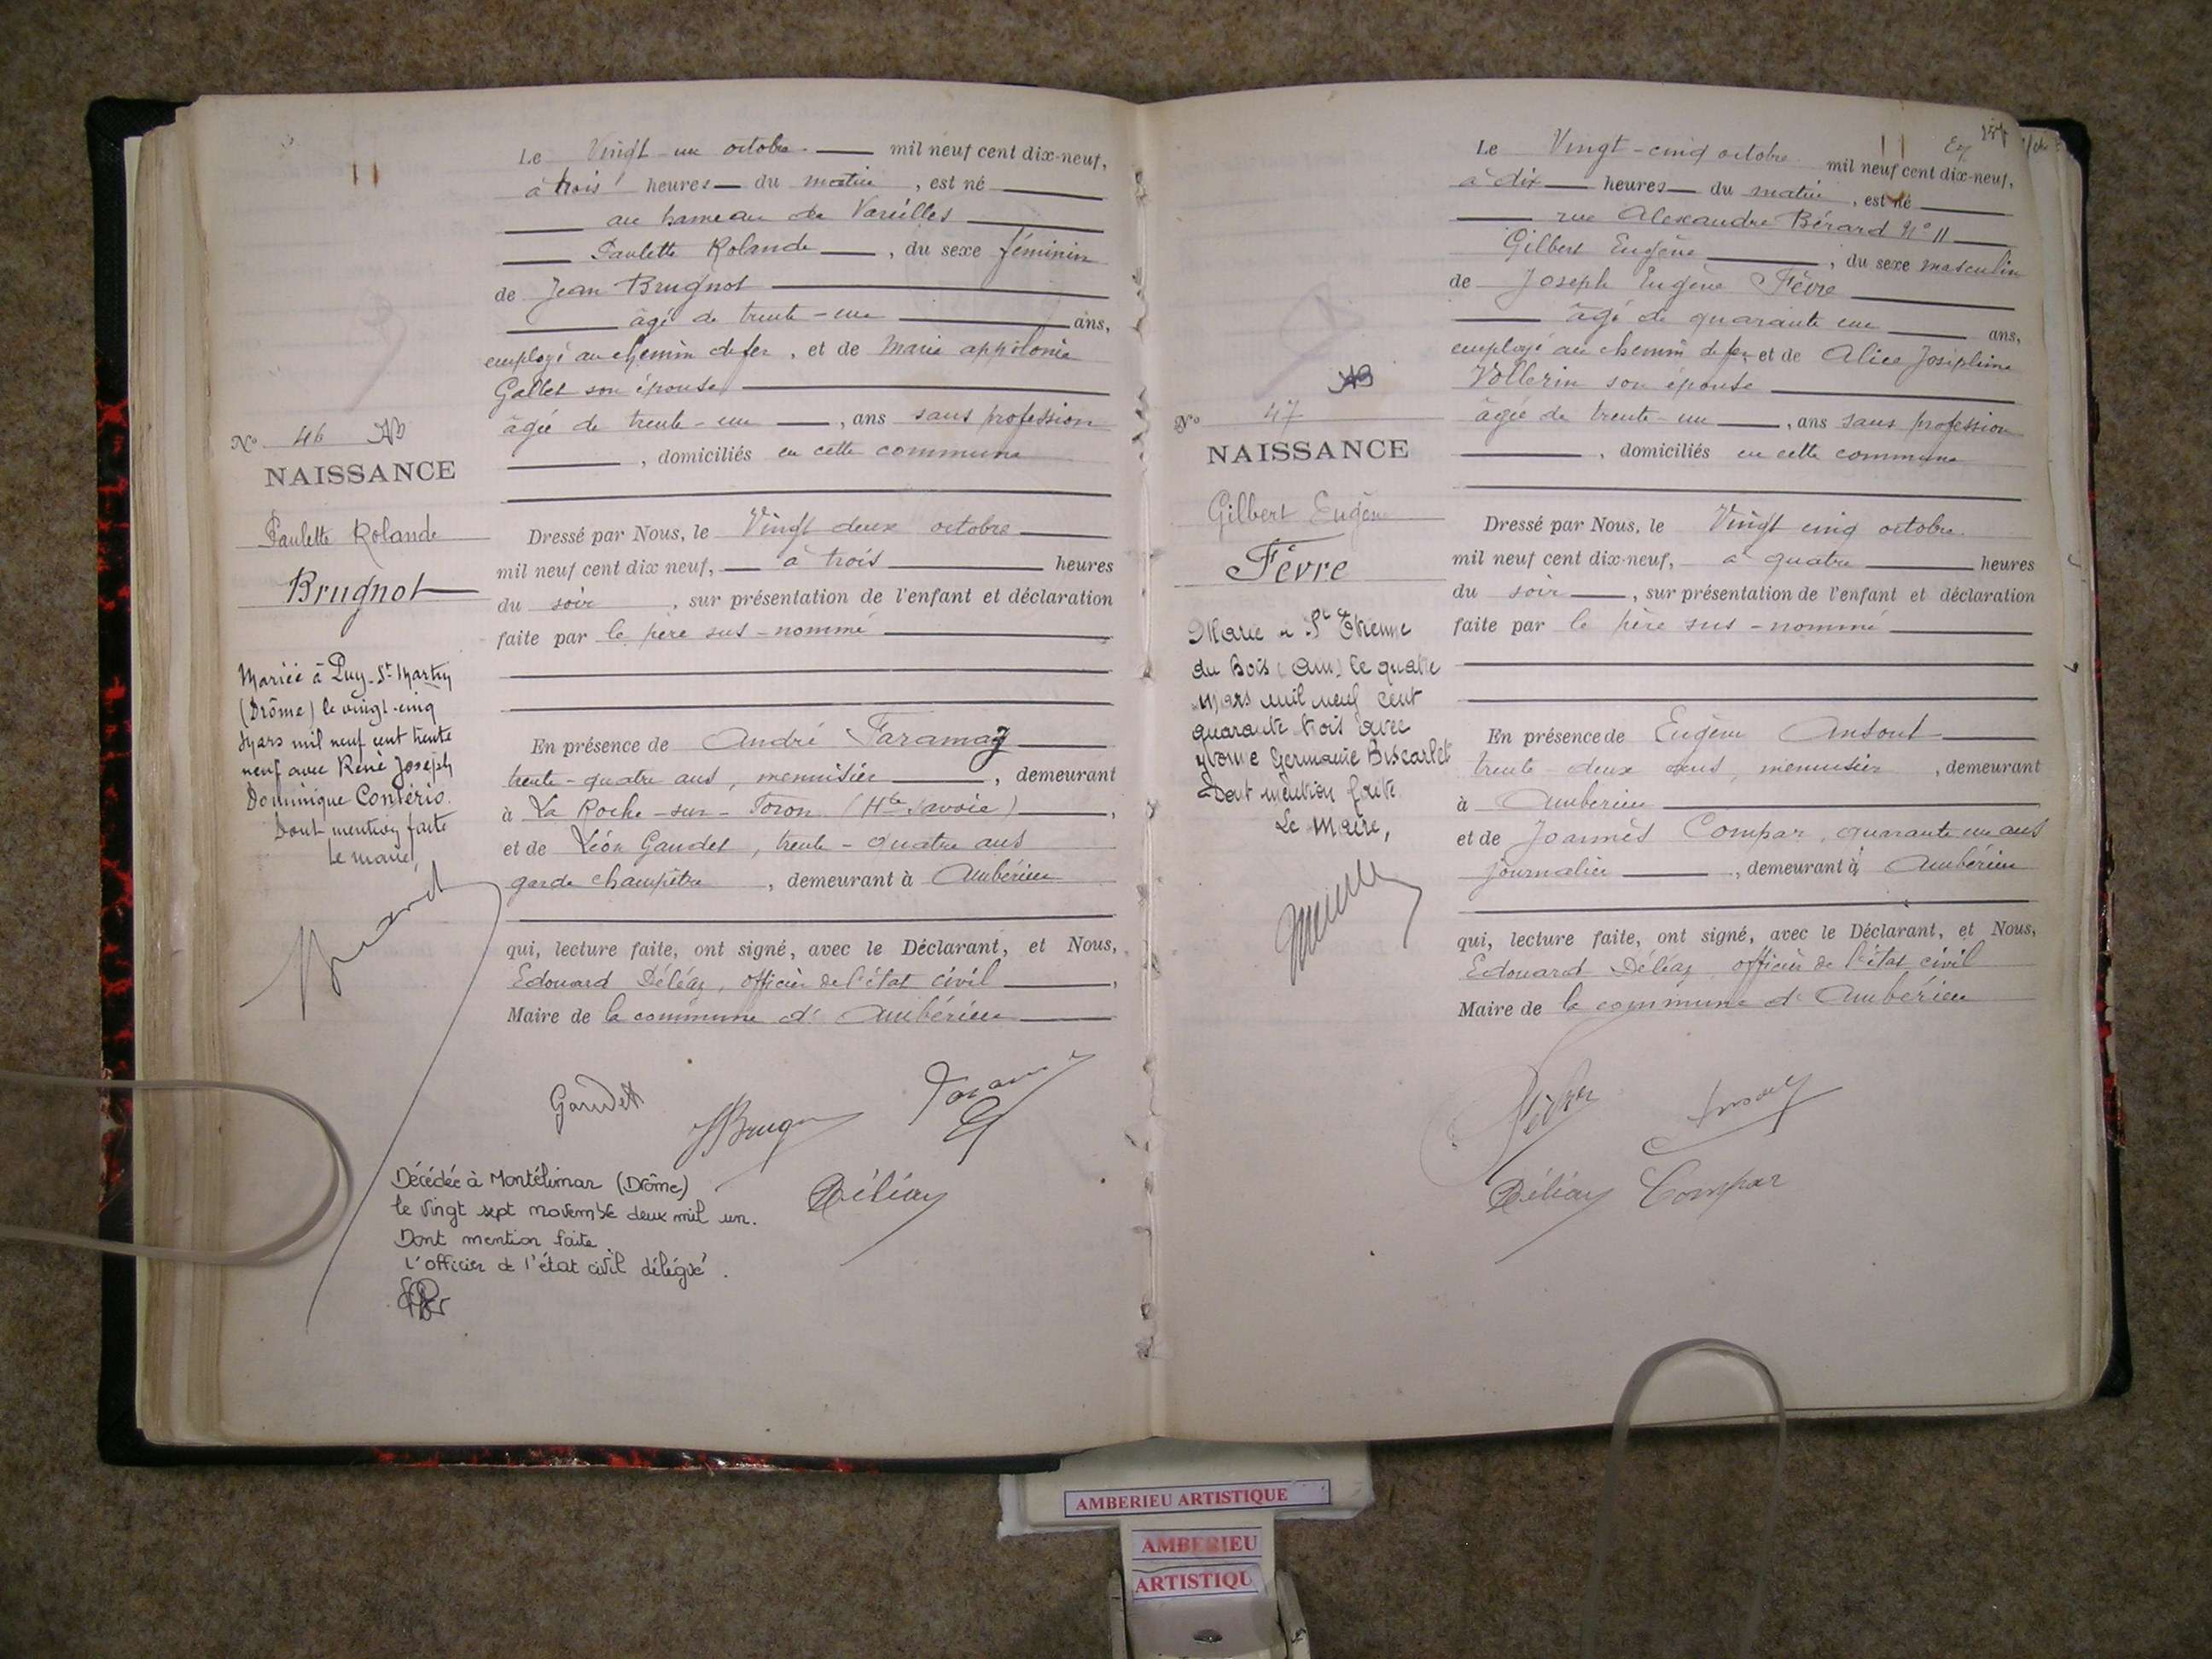 Le Vingt-un octobre mil neuf cent dix-neuf,
à trois heures du matin, est né
au hameau de Vareilles
Paulette Rolande, du sexe féminin
de Jean Brugnot
âgé de trente-un ans,
employé au chemin de fer, et de Marie appolonie
Gallet son épouse
âgée de trente-un, ans sans profession
, domiciliés en cette commune
N° 46
NAISSANCE
Paulette Rolande
Brugnot
Mariée à Puy-St-Martin
(Drôme) le vingt-cinq
Mars mil neuf cent trente
neuf avec René Joseph
Dominique Contério.
Dont mention faite
Le maire,
Dressé par Nous, le Vingt deux octobre
mil neuf cent dix neuf, à trois heures
du soir, sur présentation de l'enfant et déclaration
faite par le père sus-nommé
En présence de André Faramaz
trente-quatre ans, menuisier, demeurant
à La Roche-sur-Foron (Hte Savoie),
et de Léon Gaudet, trente-quatre ans
garde champêtre, demeurant à Ambérieu
qui, lecture faite, ont signé, avec le Déclarant, et Nous,
Edouard Déléaz, officier de l'état civil,
Maire de la commune d'Ambérieu
Gaudet
JBrugn
Déléaz
Décédée à Montélimar (Drôme)
le vingt sept novembre deux mil un.
Dont mention faite
L'officier de l'état civil délégué.
Le Vingt-cinq octobre mil neuf cent dix-neuf,
à dix heures du matin, est né
rue Alexandre Bérard N° 11
Gilbert Eugène, du sexe masculin
de Joseph Eugène Fèvre
âgé de quarante un ans,
employé au chemin de fer et de Alice Joséphine
Vollerin son épouse
âgée de trente-un, ans sans profession
, domiciliés en cette commune
N° 47
NAISSANCE
Gilbert Eugène
Fèvre
Marié à St Etienne
du Bois (Ain) le quatre
Mars mil neuf cent
quarante trois avec
Yvonne Germaine Buscarlet
Dont mention faite
Le Maire,
Dressé par Nous, le Vingt cinq octobre
mil neuf cent dix-neuf, à quatre heures
du soir, sur présentation de l'enfant et déclaration
faite par le père sus-nommé
En présence de Eugène
trente-deux ans, menuisier, demeurant
à Ambérieu
et de Joannès Compar, quarante un ans
journalier, demeurant à Ambérieu
qui, lecture faite, ont signé, avec le Déclarant, et Nous,
Edouard Déléaz officier de l'état civil
Maire de la commune d'Ambérieu
Déléaz Compar
AMBERIEU ARTISTIQUE
AMBERIEU
ARTISTIQU